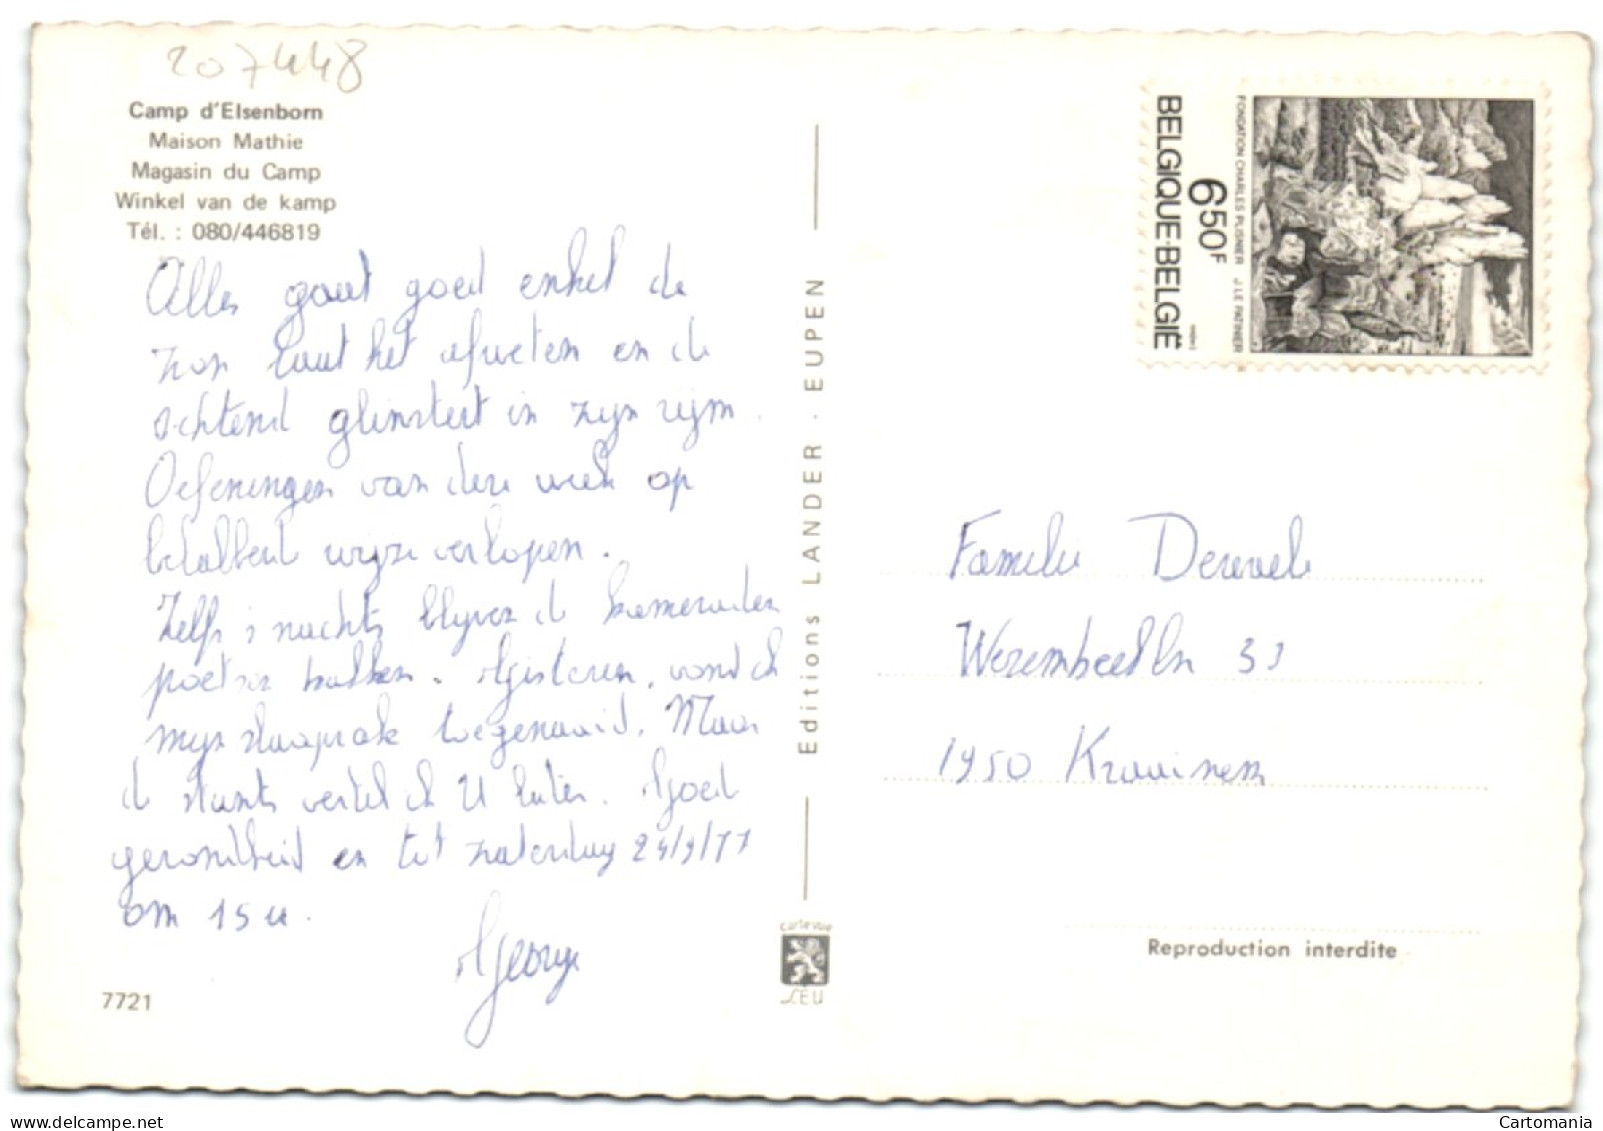 207448
Camp d'Elsenborn
Maison Mathie
Magasin du Camp
Winkel van de kamp
Tél. : 080/446819
Alles gaat goed enkel de
zon laat het afweten en de
ochtend glinstert in zijn rijm.
Oefeningen van deze week op
betalbent wijze verlopen.
Zelfs 's nachts blijven de kameraden
poetsen bakken. Gisteren, vond ik
mijn slaapzak toegenaaid. Maar
de stunts vertel ik U later. Goed
gezondheid en tot zaterdag 24/9/77
om 15 u.
George
7721
Editions LANDER - EUPEN
carte vue
LEU
BELGIQUE-BELGIË
650F
FONDATION CHARLES PLISNIER J. LE PATINIER
Familie
Wezembeekln 33
1950 Kraainem
Reproduction interdite
www.delcampe.net
Cartomania